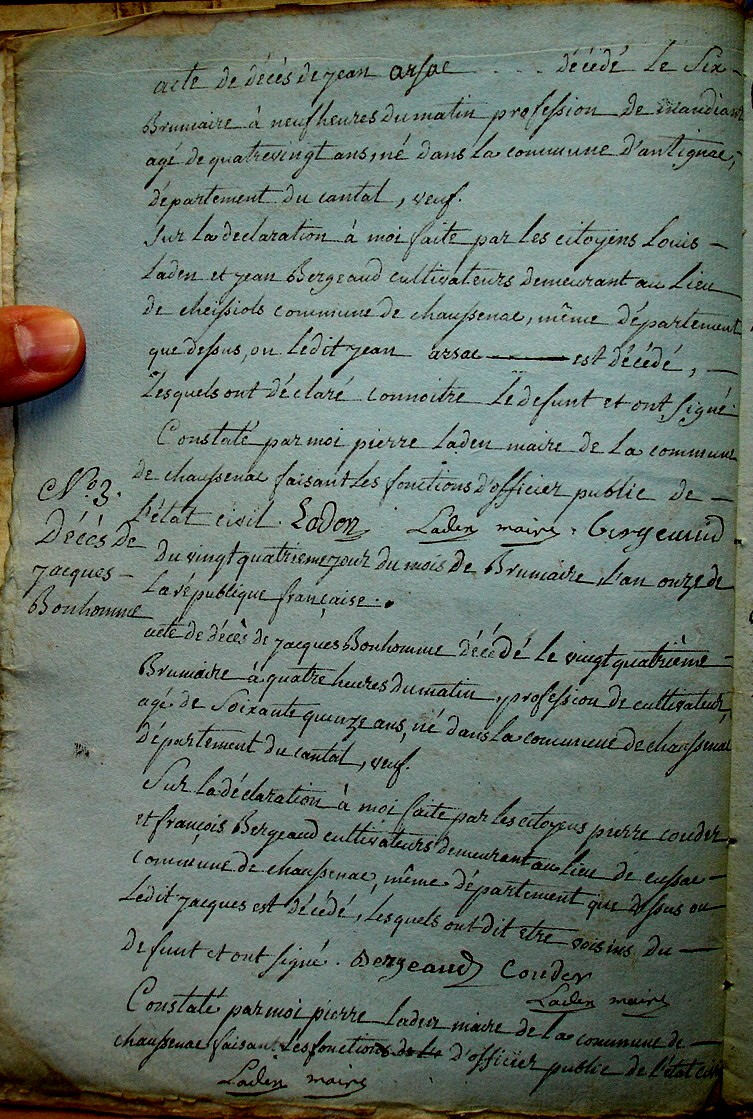 acte de décès de jean arsac . . . . décédé le Six -
Brumaire à neuf heures du matin profession de mandiant
agé de quatrevingt ans, né dans la commune d'antignac,
département du cantal, veuf.
Sur la declaration à moi faite par les citoyens Louis -
Laden et jean Bergeaud cultivateurs demeurant au Lieu
de cheissiols commune de chaussenac, même département
que dessus, ou ledit jean arsac est décédé, -
Lesquels ont déclaré connoitre Le defunt et ont signé
Constaté par moi pierre Laden maire de la commune
de chaussenac faisant Les fonctions d'officier public de -
l'état civil. Ladon Laden maire - Bergeaud
N.o 3.
Décès de
jacques -
Bonhomme
Du vingt quatrieme jour du mois de Brumaire, L'an onze de
La république française.
acte de décès de jacques Bonhomme décédé le vingt quatrième -
Brumaire à quatre heures du matin, profession de cultivateur,
agé de Soixante quinze ans, né dans la commune de chaussenac
département du cantal, veuf.
Sur La déclaration à moi faite par les citoyens pierre couder
et françois Bergeaud cultivateurs demeurant au lieu de cussac -
commune de chaussenac, même département que dessus ou
Ledit jacques est décédé, Lesquels ont dit etre voisins du -
defunt et ont signé. Bergeaud Couder
Laden maire
Constaté par moi pierre Laden maire de la commune de -
chaussenac faisant Les fonctions de le d'officier public de l'état civil
Laden maire